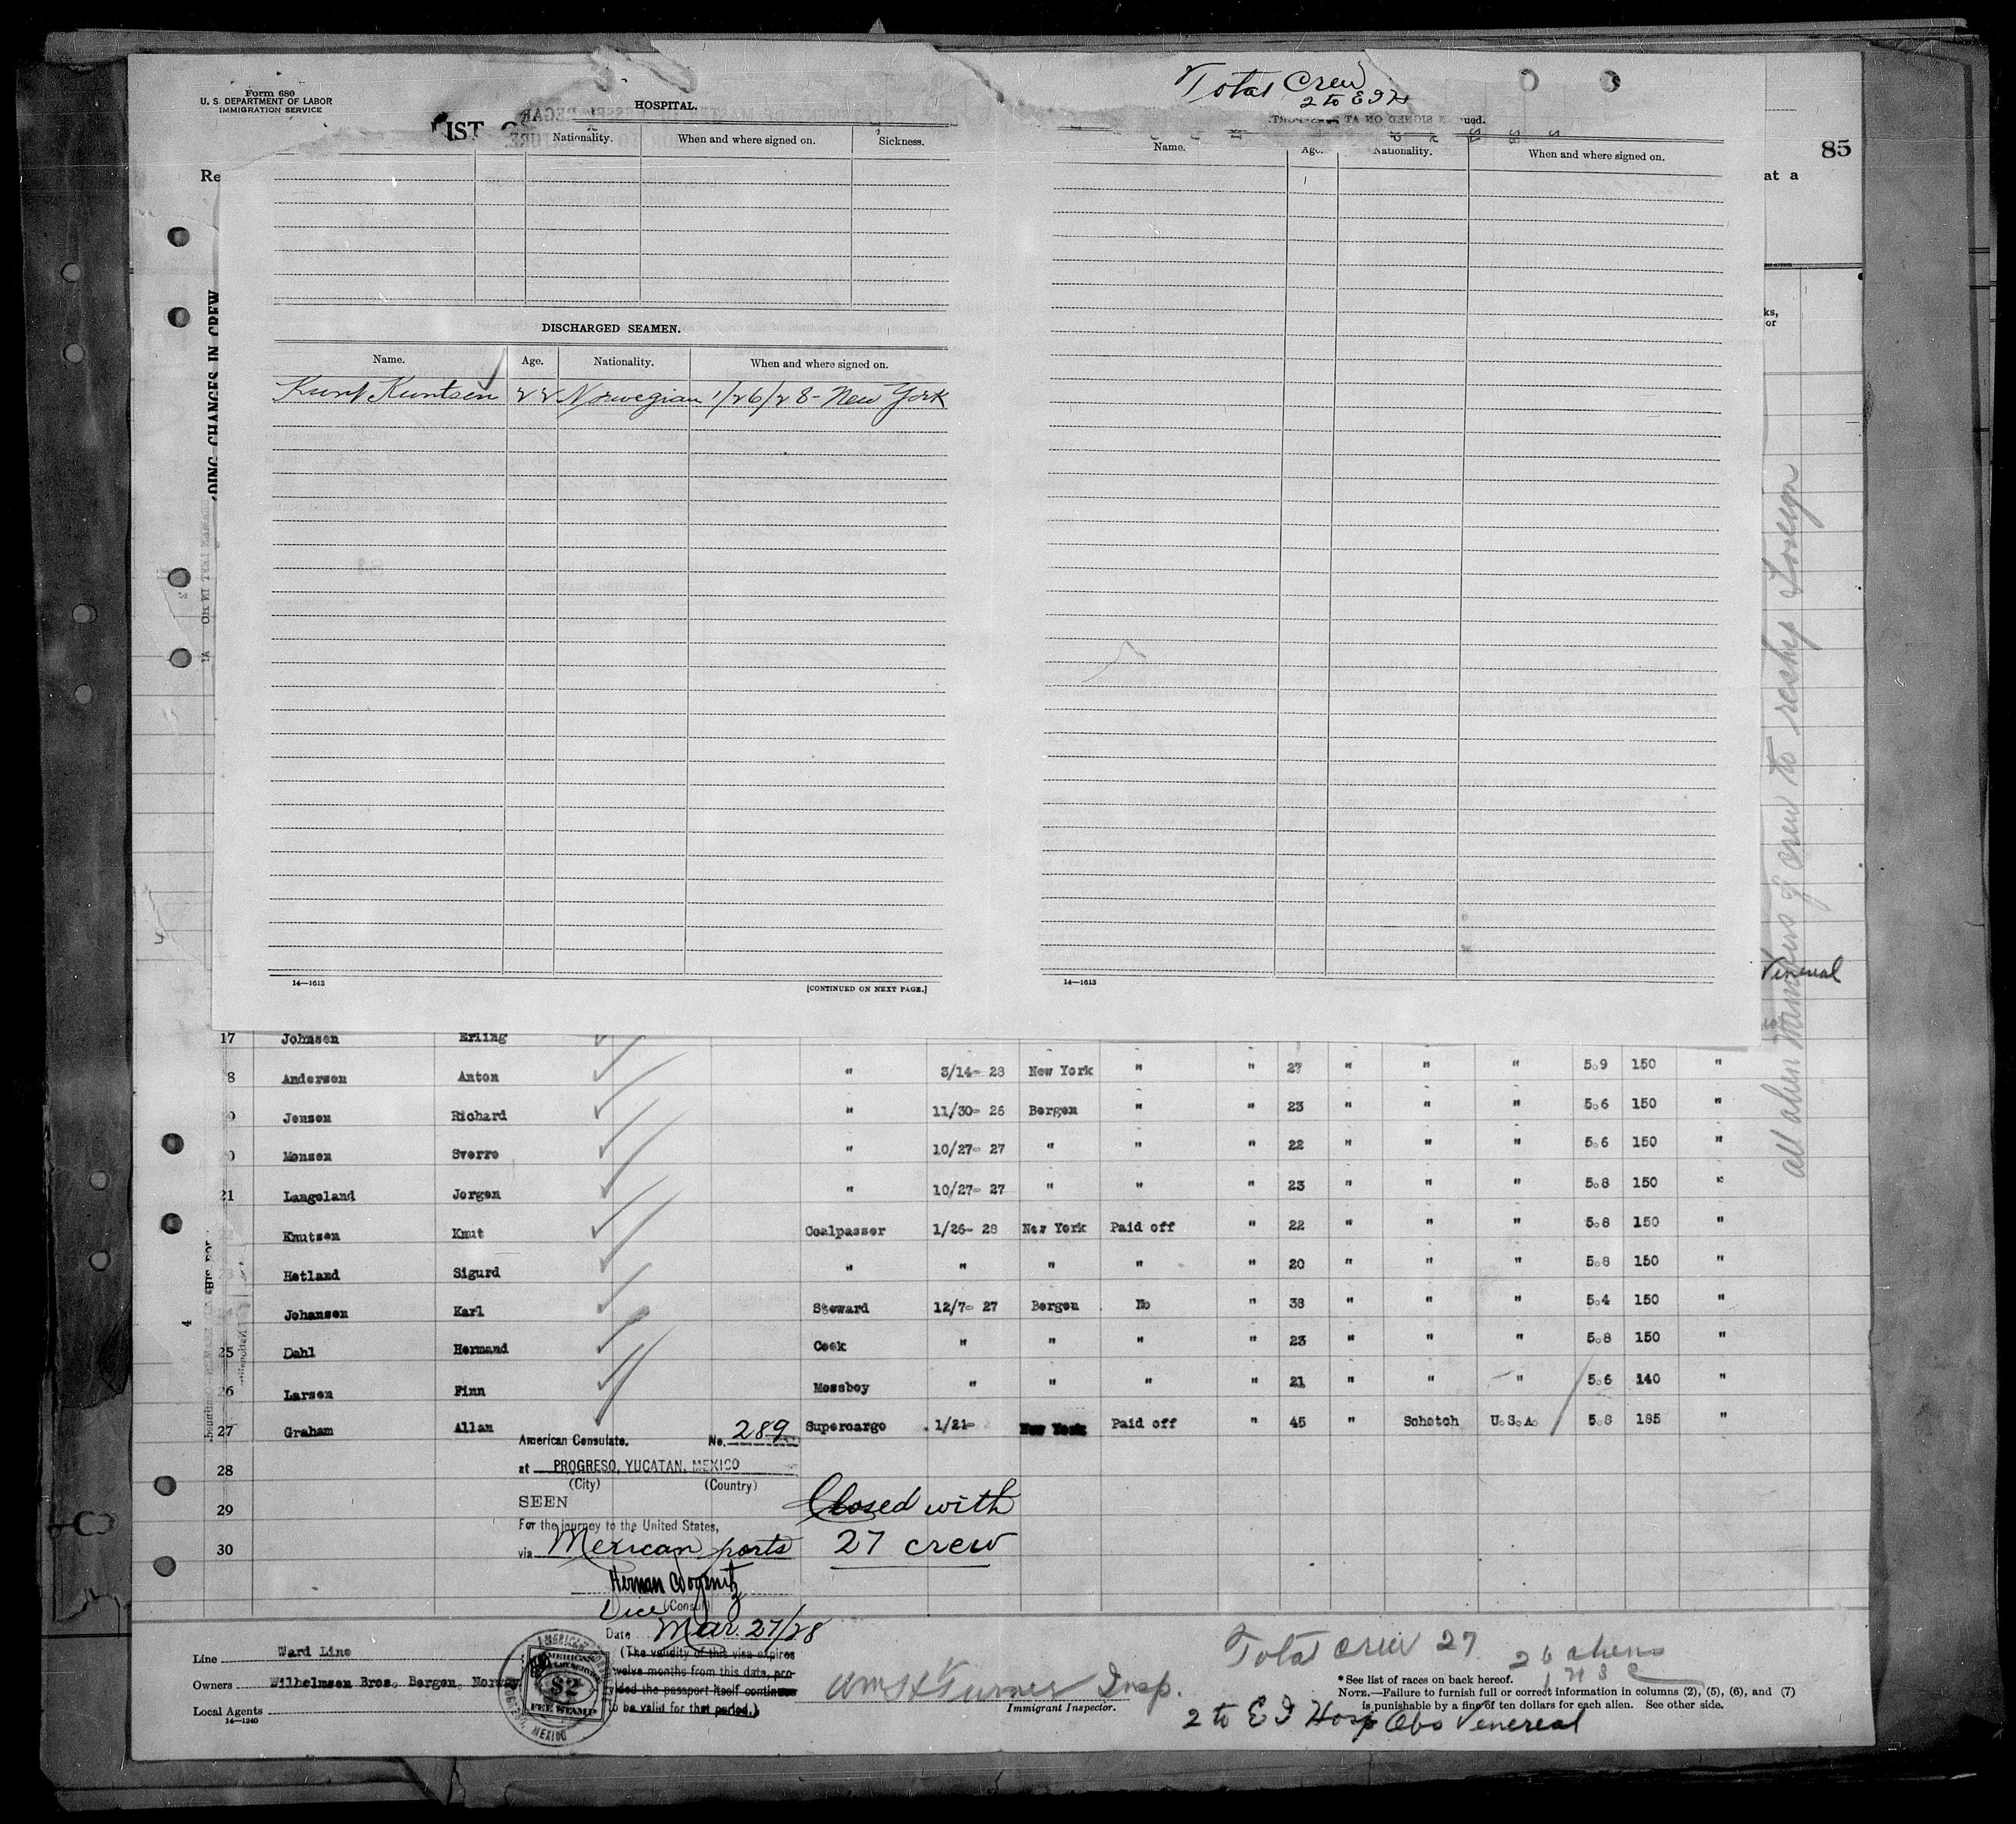 Form 680
U. S. DEPARTMENT OF LABOR
IMMIGRATION SERVICE
LIST
Re
HOSPITAL.
Nationality. When and where signed on. Sickness.
DISCHARGED SEAMEN.
Name. Age. Nationality. When and where signed on.
Kunt Kuntsen 22 Norwegian 1/26/28 - New York
14—1613 [CONTINUED ON NEXT PAGE.]
Total Crew
2 to E I H
ued.
Name. Age. Nationality. When and where signed on.
14—1613
85
at a
ks,
or
Venereal
all alien members of crew to reship foreign
DING CHANGES IN CREW
17 Johnsen Erling
8 Andersen Anton " 3/14- 28 New York " " 27 " " " 5.9 150 "
9 Jensen Richard " 11/30- 26 Bergen " " 23 " " " 5.6 150 "
0 Monsen Sverre " 10/27- 27 " " " 22 " " " 5.6 150 "
21 Langeland Jorgen " 10/27- 27 " " " 23 " " " 5.8 150 "
Knutsen Knut Coalpasser 1/26- 28 New York Paid off " 22 " " " 5.8 150 "
Hetland Sigurd " " " " " 20 " " " 5.8 150 "
Johansen Karl Steward 12/7- 27 Bergen No " 38 " " " 5.4 150 "
25 Dahl Hermand Cook " " " " 23 " " " 5.8 150 "
26 Larsen Finn Messboy " " " " 21 " " " 5.6 140 "
27 Graham Allan Supercargo 1/21- New York Paid off " 45 " Schotch U.S.A. 5.8 185 "
28
29
30
American Consulate. No. 289
at PROGRESO, YUCATAN, MEXICO
(City) (Country)
SEEN
For the journey to the United States,
via Mexican ports
Vice (Consul)
Date Mar. 27/28
(The validity of this visa expires
twelve months from this date, pro-
ided the passport itself continues
to be valid for that period.)
Closed with
27 crew
AMERICAN
FEE STAMP
$2
MEXICO
Line Ward Line
Owners Wilhelmsen Bros. Bergen, Norway
Local Agents
14—1240
Wm H Turner Insp.
Immigrant Inspector.
Total crew 27 26 aliens
1 U S C
* See list of races on back hereof.
NOTE.—Failure to furnish full or correct information in columns (2), (5), (6), and (7)
is punishable by a fine of ten dollars for each alien. See other side.
2 to E I Hosp Obs Venereal